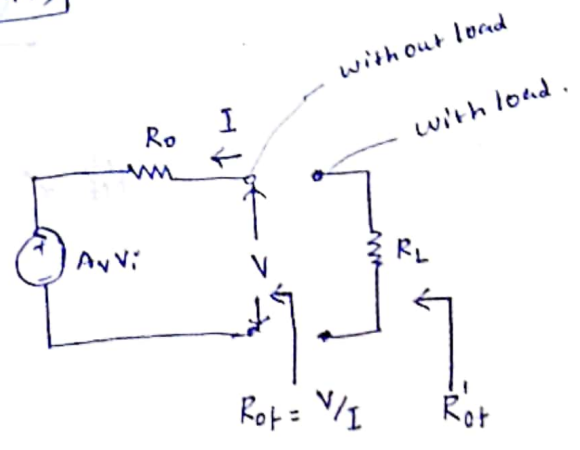 without load
with load.
Ro
I
+
-
AvVi
V
RL
Rof = V/I
R'of